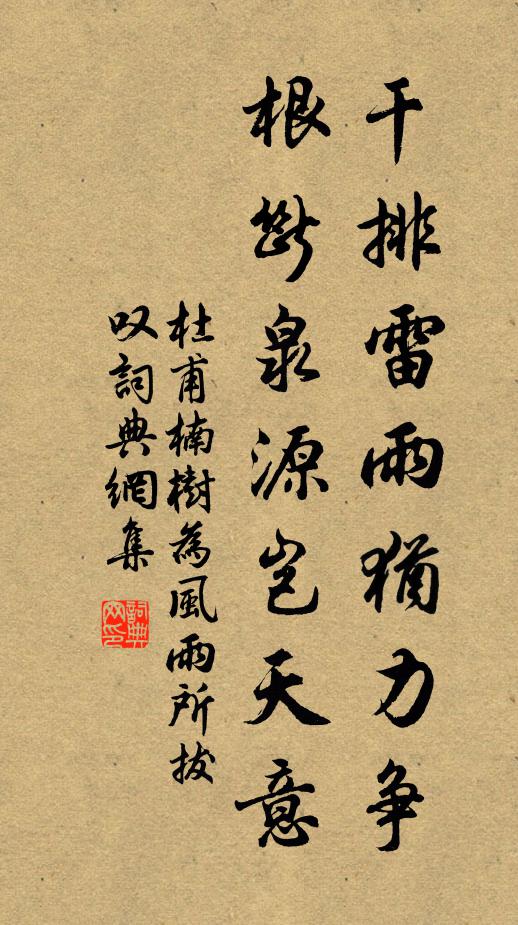 干排雷雨猶力争
根斷泉源豈天意
杜甫楠樹為風雨所拔
叹詞典網集
詞典网印